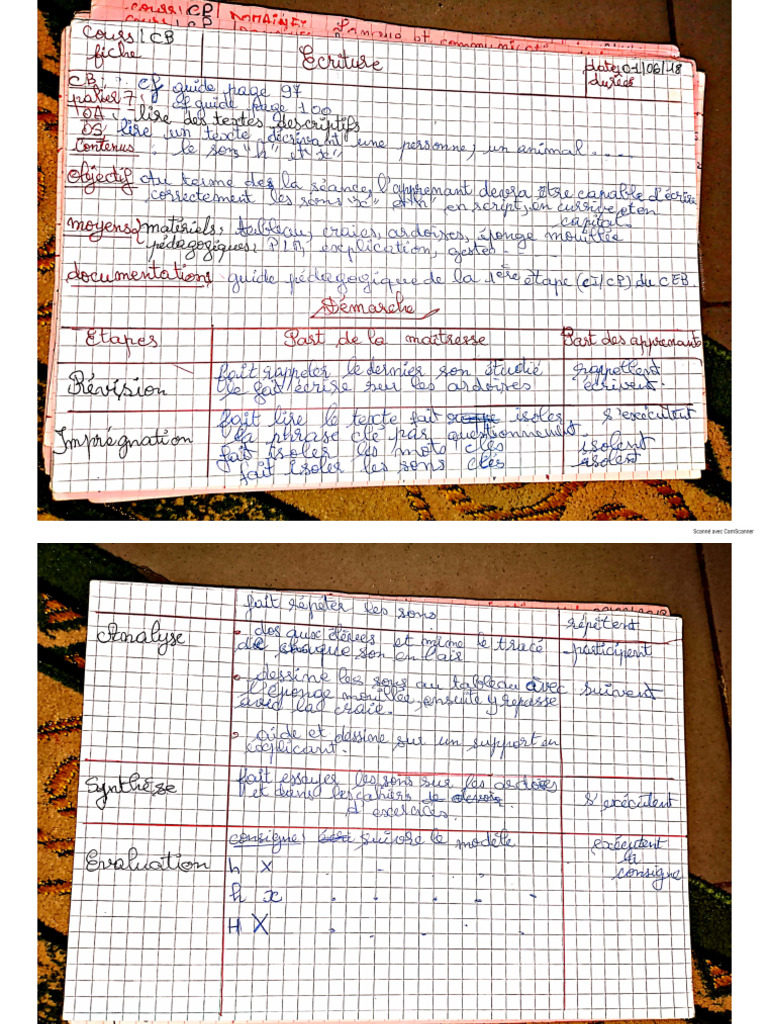 cours: CP DOMAINE: Langue et communication
Cours: CB
fiche
Ecriture
date: 01/06/18
durée:
CB: cf guide page 97
palier 7: cf guide page 100
OA: lire des textes descriptifs
OS: lire un texte décrivant une personne, un animal....
Contenus: le son "h" et "x"
Objectif: Au terme de la séance, l'apprenant devra être capable d'écrire
correctement les sons "x" et "h" en script, en cursive et en
capital.
moyens matériels: tableau, craies, ardoises, éponge mouillée
pédagogiques: PIA, explication, gestes
documentation: guide pédagogique de la 1ère étape (CI/CP) du CEB.
Démarche
Etapes Part de la maîtresse Part des apprenants
Révision fait rappeler le dernier son étudié rappellent
le fait écrire sur les ardoises écrivent.
Imprégnation fait lire le texte fait isoler s'exécutent
la phrase clé par questionnement
fait isoler les mots clés isolent
fait isoler les sons clés isolent
Scanné avec CamScanner
fait répéter les sons répètent
Analyse • dos aux élèves et mime le tracé participent
de chaque son en l'air
• dessine les sons au tableau avec suivent
l'éponge mouillée, ensuite y repasse
avec la craie.
• aide et dessine sur un support en
expliquant.
Synthèse fait essayer les sons sur les ardoises
et dans les cahiers s'exécutent
d'exercices.
Evaluation consigne: suivre le modèle exécutent
la
consigne
h x
h x
H X